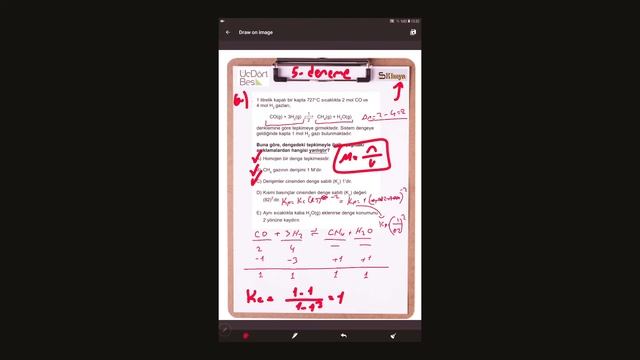 Draw on image
ÜçDört
Beş
5. deneme
SKimya
6.)
1 litrelik kapalı bir kapta 727°C sıcaklıkta 2 mol CO ve
4 mol H₂ gazları,
CO(g) + 3H₂(g) ⇌ CH₄(g) + H₂O(g)
Δn=2-4=-2
denklemine göre tepkimeye girmektedir. Sistem dengeye
geldiğinde kapta 1 mol H₂ gazı bulunmaktadır.
Buna göre, dengedeki tepkimeyle ilgili
açıklamalardan hangisi yanlıştır?
M = n/V
A) Homojen bir denge tepkimesidir.
B) CH₄ gazının derişimi 1 M'dır.
C) Derişimler cinsinden denge sabiti (K꜀) 1'dir.
D) Kısmi basınçlar cinsinden denge sabiti (Kₚ) değeri
(82)²dir.
E) Aynı sıcaklıkta kaba H₂O(g) eklenirse denge konumu
2 yönüne kaydırır.
CO + 3H₂ ⇌ CH₄ + H₂O
2 4
-1 -3 +1 +1
1 1 1 1
Kc = 1·1 / 1·1³ = 1